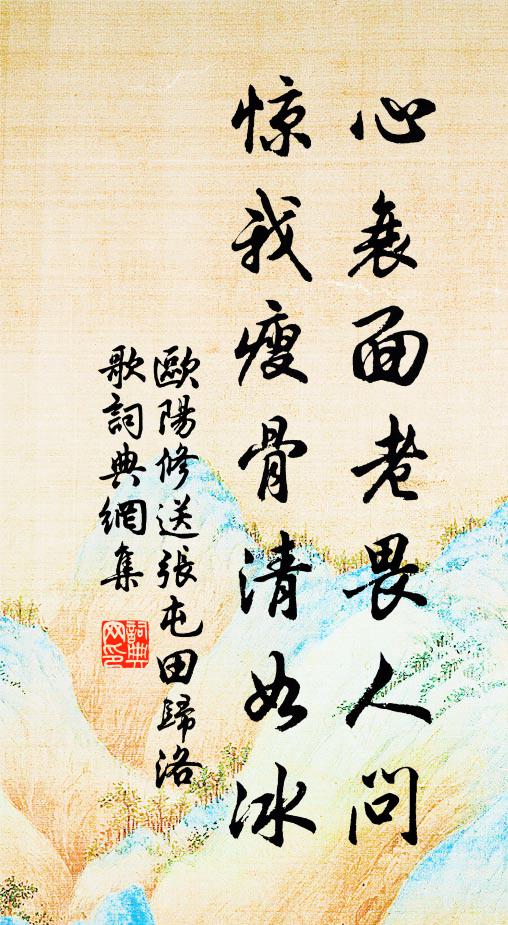 心衰面老畏人问
惊我瘦骨清如冰
歐陽修送張屯田歸洛
歌詞典網集
詞典
网印